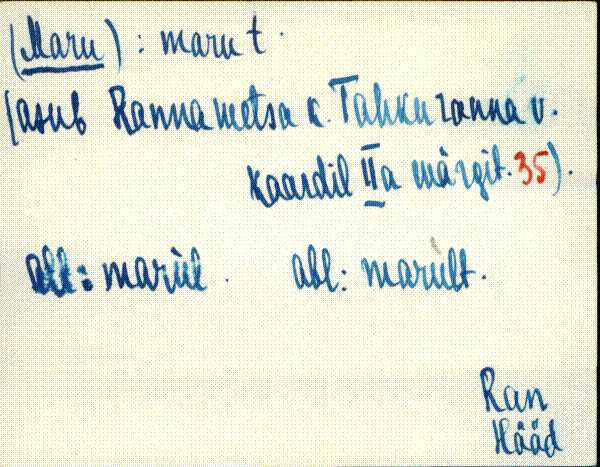 (Maru) : maru t.
(asub Rannametsa k. Tahkuranna v.
Kaardil IIa märgit. 35).
all: marùl. abl: marùlt.
Ran
Hääd